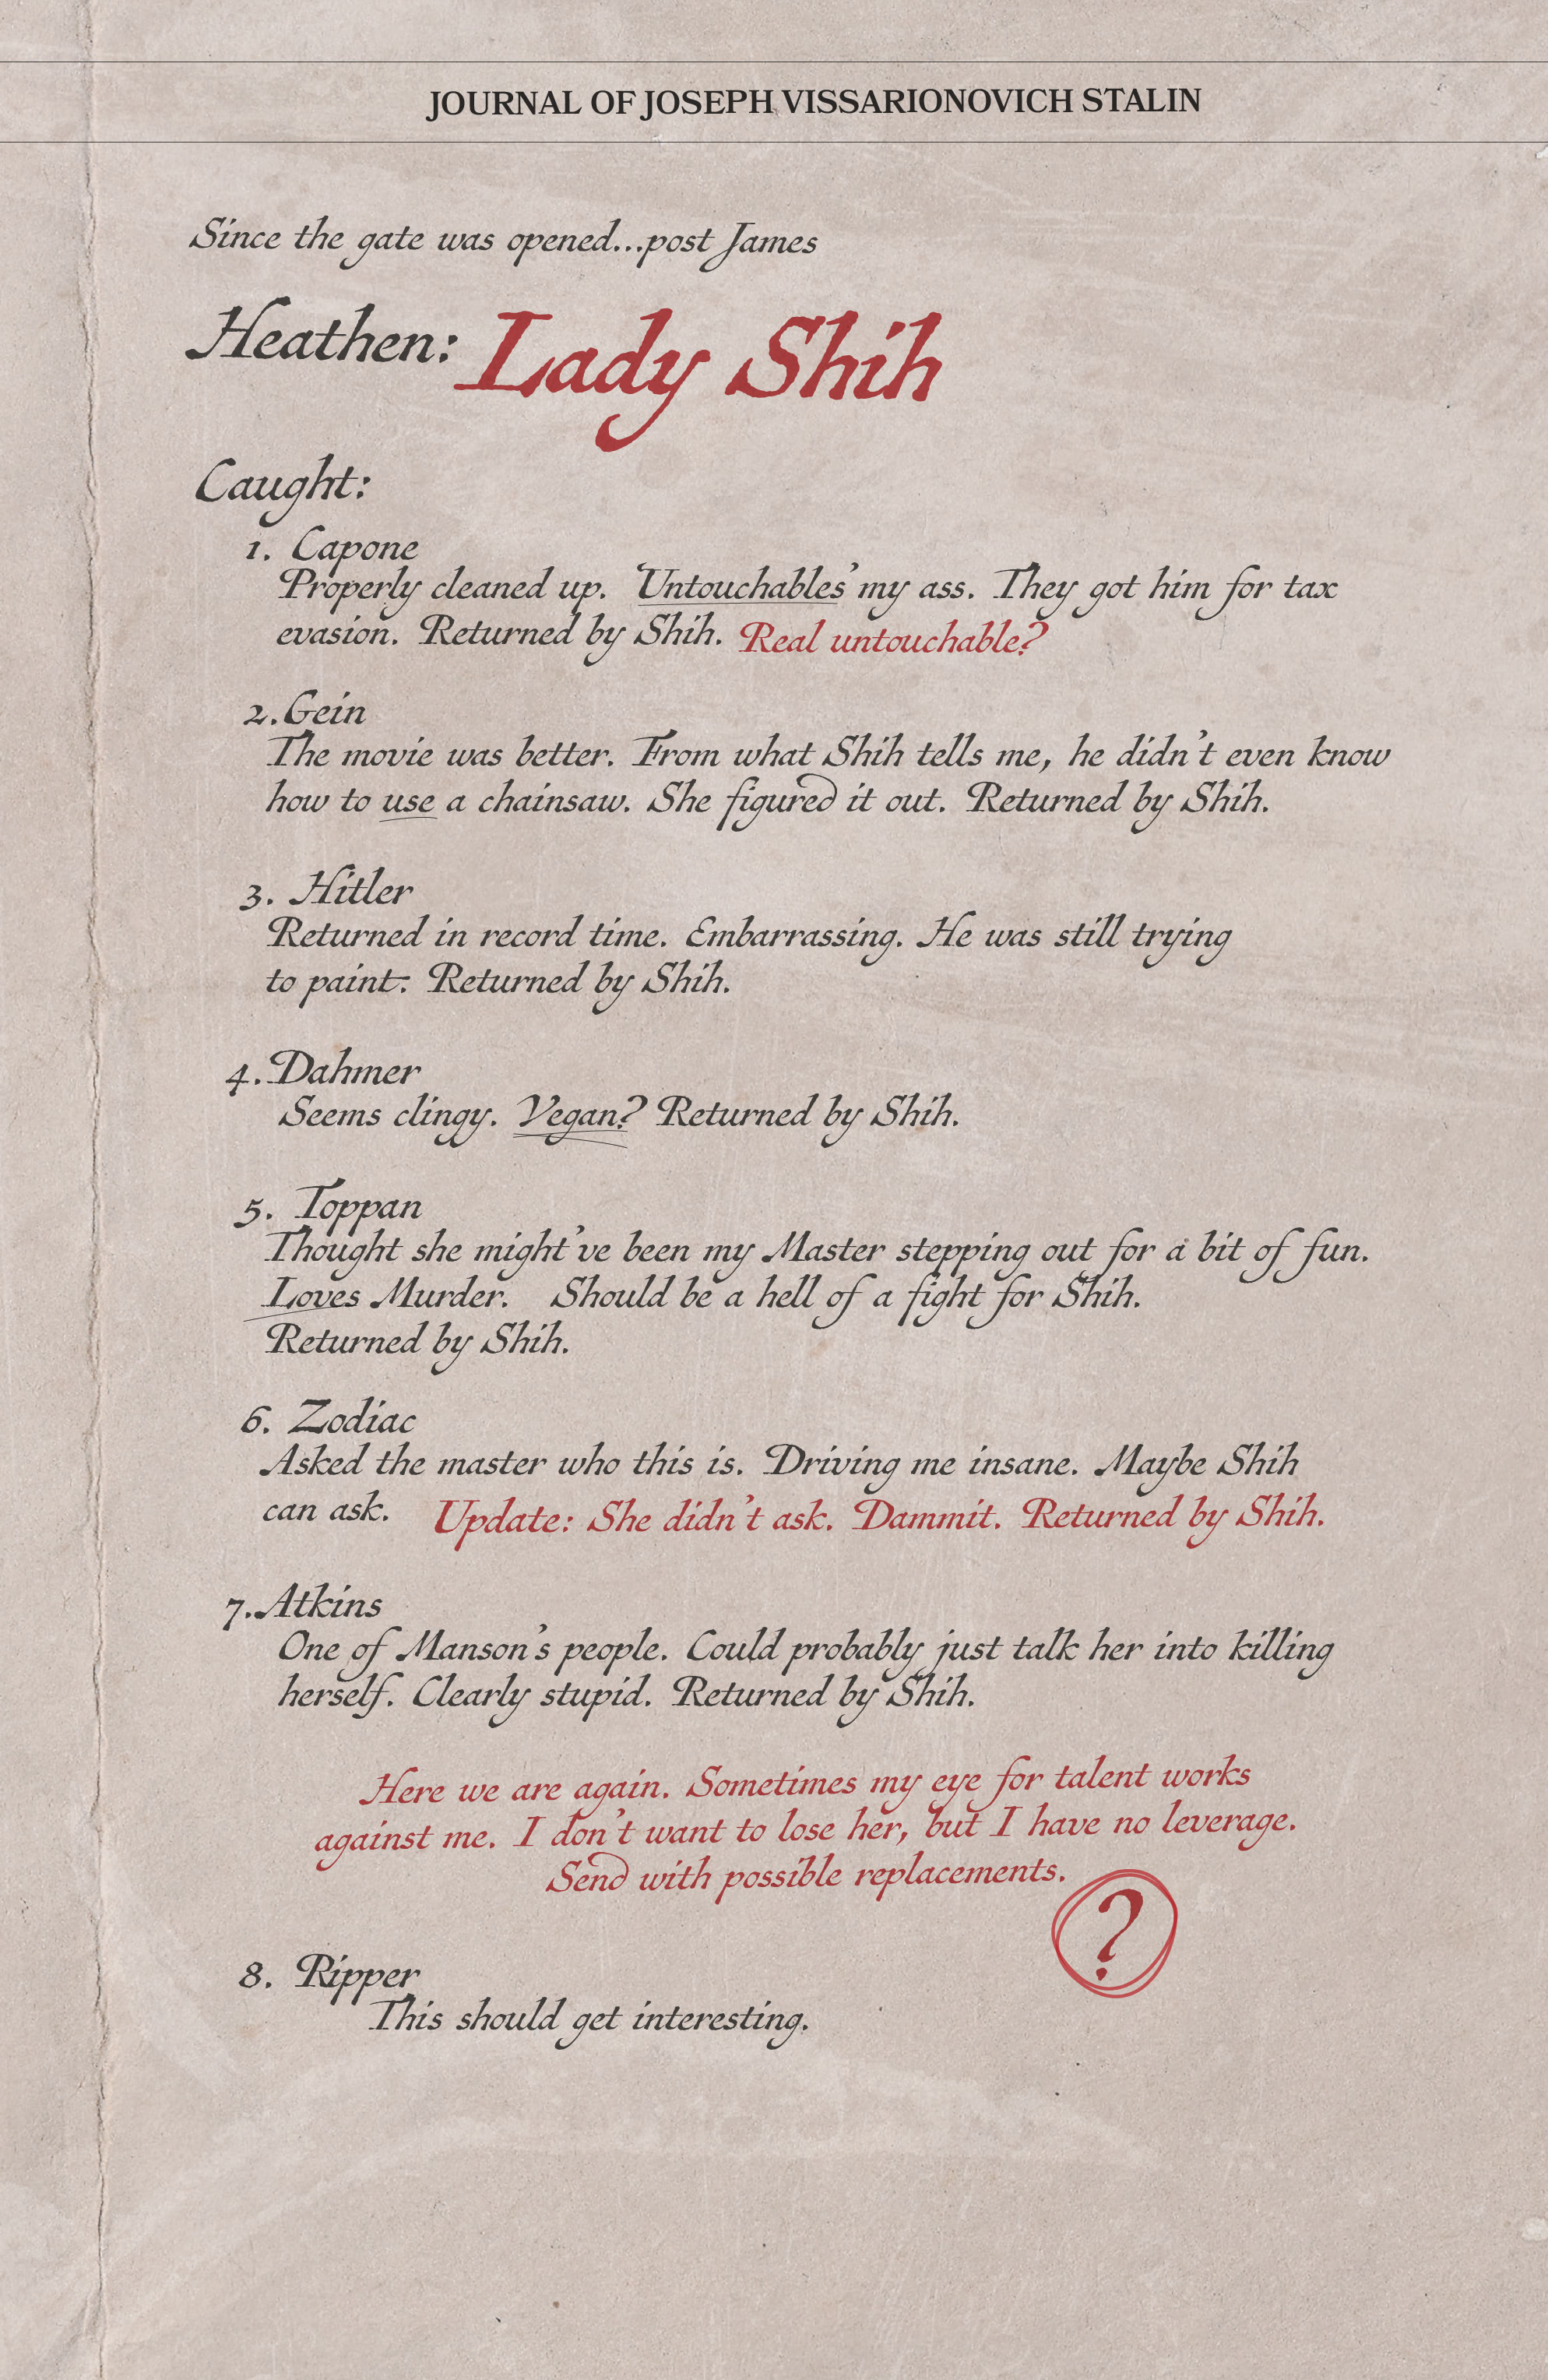 JOURNAL OF JOSEPH VISSARIONOVICH STALIN
Since the gate was opened...post James
Heathen: Lady Shih
Caught:
1. Capone
Properly cleaned up. 'Untouchables' my ass. They got him for tax
evasion. Returned by Shih. Real untouchable?
2. Gein
The movie was better. From what Shih tells me, he didn't even know
how to use a chainsaw. She figured it out. Returned by Shih.
3. Hitler
Returned in record time. Embarrassing. He was still trying
to paint. Returned by Shih.
4. Dahmer
Seems clingy. Vegan? Returned by Shih.
5. Toppan
Thought she might've been my Master stepping out for a bit of fun.
Loves Murder. Should be a hell of a fight for Shih.
Returned by Shih.
6. Zodiac
Asked the master who this is. Driving me insane. Maybe Shih
can ask. Update: She didn't ask. Dammit. Returned by Shih.
7. Atkins
One of Manson's people. Could probably just talk her into killing
herself. Clearly stupid. Returned by Shih.
Here we are again. Sometimes my eye for talent works
against me. I don't want to lose her, but I have no leverage.
Send with possible replacements.
?
8. Ripper
This should get interesting.